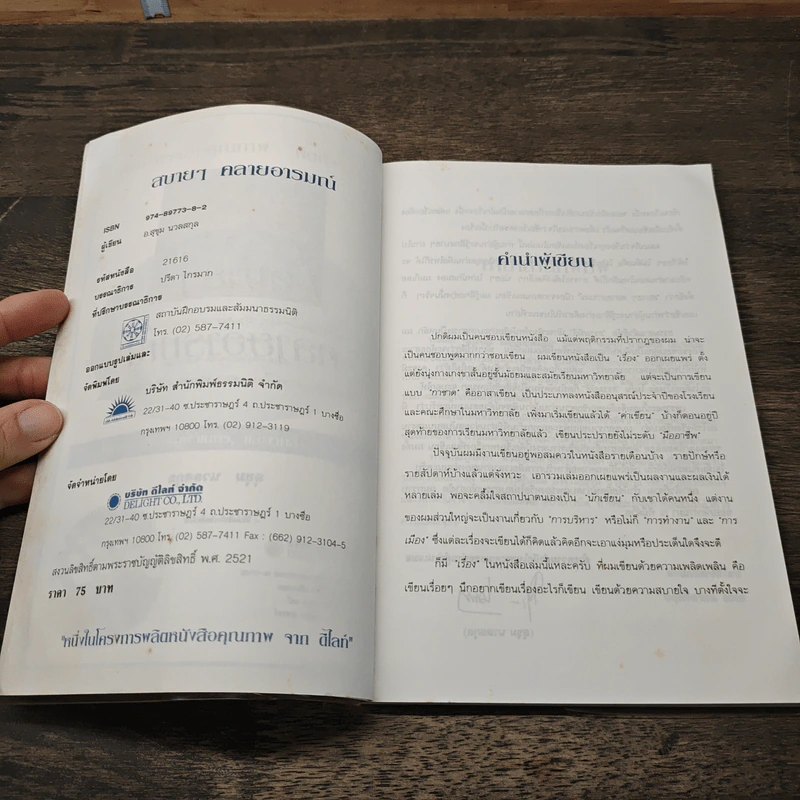 สบายๆ คลายอารมณ์
ISBN 974-89773-8-2
ผู้เขียน อ.สุขุม นวลสกุล
รหัสหนังสือ 21616
บรรณาธิการ ปรีดา ไกรมาก
ที่ปรึกษาบรรณาธิการ
สถาบันฝึกอบรมและสัมมนาธรรมนิติ
โทร. (02) 587-7411
ออกแบบรูปเล่มและ
จัดพิมพ์โดย บริษัท สำนักพิมพ์ธรรมนิติ จำกัด
22/31-40 ซ.ประชาราษฎร์ 4 ถ.ประชาราษฎร์ 1 บางซื่อ
กรุงเทพฯ 10800 โทร. (02) 912-3119
จัดจำหน่ายโดย
บริษัท ดีไลท์ จำกัด
DELIGHT CO., LTD.
22/31-40 ซ.ประชาราษฎร์ 4 ถ.ประชาราษฎร์ 1 บางซื่อ
กรุงเทพฯ 10800 โทร. (02) 587-7411 Fax : (662) 912-3104-5
สงวนลิขสิทธิ์ตามพระราชบัญญัติลิขสิทธิ์ พ.ศ. 2521
ราคา 75 บาท
"หนึ่งในโครงการผลิตหนังสือคุณภาพ จาก ดีไลท์"
คำนำผู้เขียน
ปกติผมเป็นคนชอบเขียนหนังสือ แม้แต่พฤติกรรมที่ปรากฏของผม น่าจะ
เป็นคนชอบพูดมากกว่าชอบเขียน ผมเขียนหนังสือเป็น "เรื่อง" ออกเผยแพร่ ตั้ง
แต่ยังนุ่งกางเกงขาสั้นอยู่ชั้นมัธยมและสมัยเรียนมหาวิทยาลัย แต่จะเป็นการเขียน
แบบ "กาชาด" คืออาสาเขียน เป็นประเภทลงหนังสืออนุสรณ์ประจำปีของโรงเรียน
และคณะศึกษาในมหาวิทยาลัย เพิ่งมาเริ่มเขียนแล้วได้ "ค่าเขียน" บ้างก็ตอนอยู่ปี
สุดท้ายของการเรียนมหาวิทยาลัยแล้ว เขียนประปรายยังไม่ระดับ "มืออาชีพ"
ปัจจุบันผมมีงานเขียนอยู่พอสมควรในหนังสือรายเดือนบ้าง รายปักษ์หรือ
รายสัปดาห์บ้างแล้วแต่จังหวะ เอารวมเล่มออกเผยแพร่เป็นผลงานและผลเงินได้
หลายเล่ม พอจะคลื้มใจสถาปนาตนเองเป็น "นักเขียน" กับเขาได้คนหนึ่ง แต่งาน
ของผมส่วนใหญ่จะเป็นงานเกี่ยวกับ "การบริหาร" หรือไม่ก็ "การทำงาน" และ "การ
เมือง" ซึ่งแต่ละเรื่องจะเขียนได้ก็คิดแล้วคิดอีกจะเอาแง่มุมหรือประเด็นใดจึงจะดี
ก็มี "เรื่อง" ในหนังสือเล่มนี้แหละครับ ที่ผมเขียนด้วยความเพลิดเพลิน คือ
เขียนเรื่อยๆ นึกอยากเขียนเรื่องอะไรก็เขียน เขียนด้วยความสบายใจ บางทีตั้งใจจะ